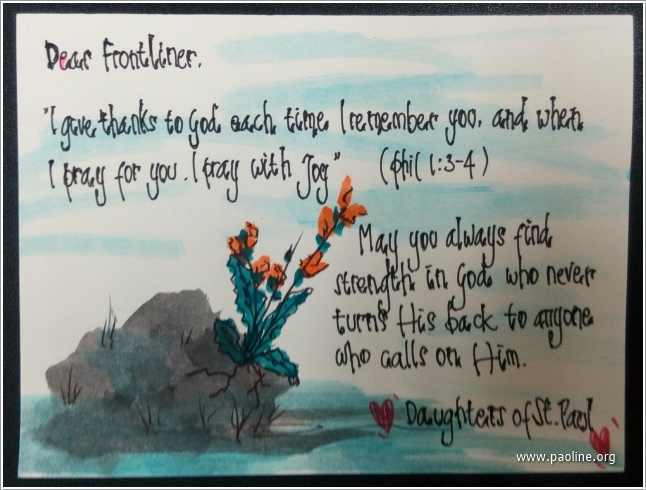 Dear Frontliner,
"I give thanks to God each time I remember you, and when
I pray for you, I pray with Joy" (Phil 1:3-4)
May you always find
strength in God who never
turns His back to anyone
who calls on Him.
Daughters of St. Paul
www.paoline.org